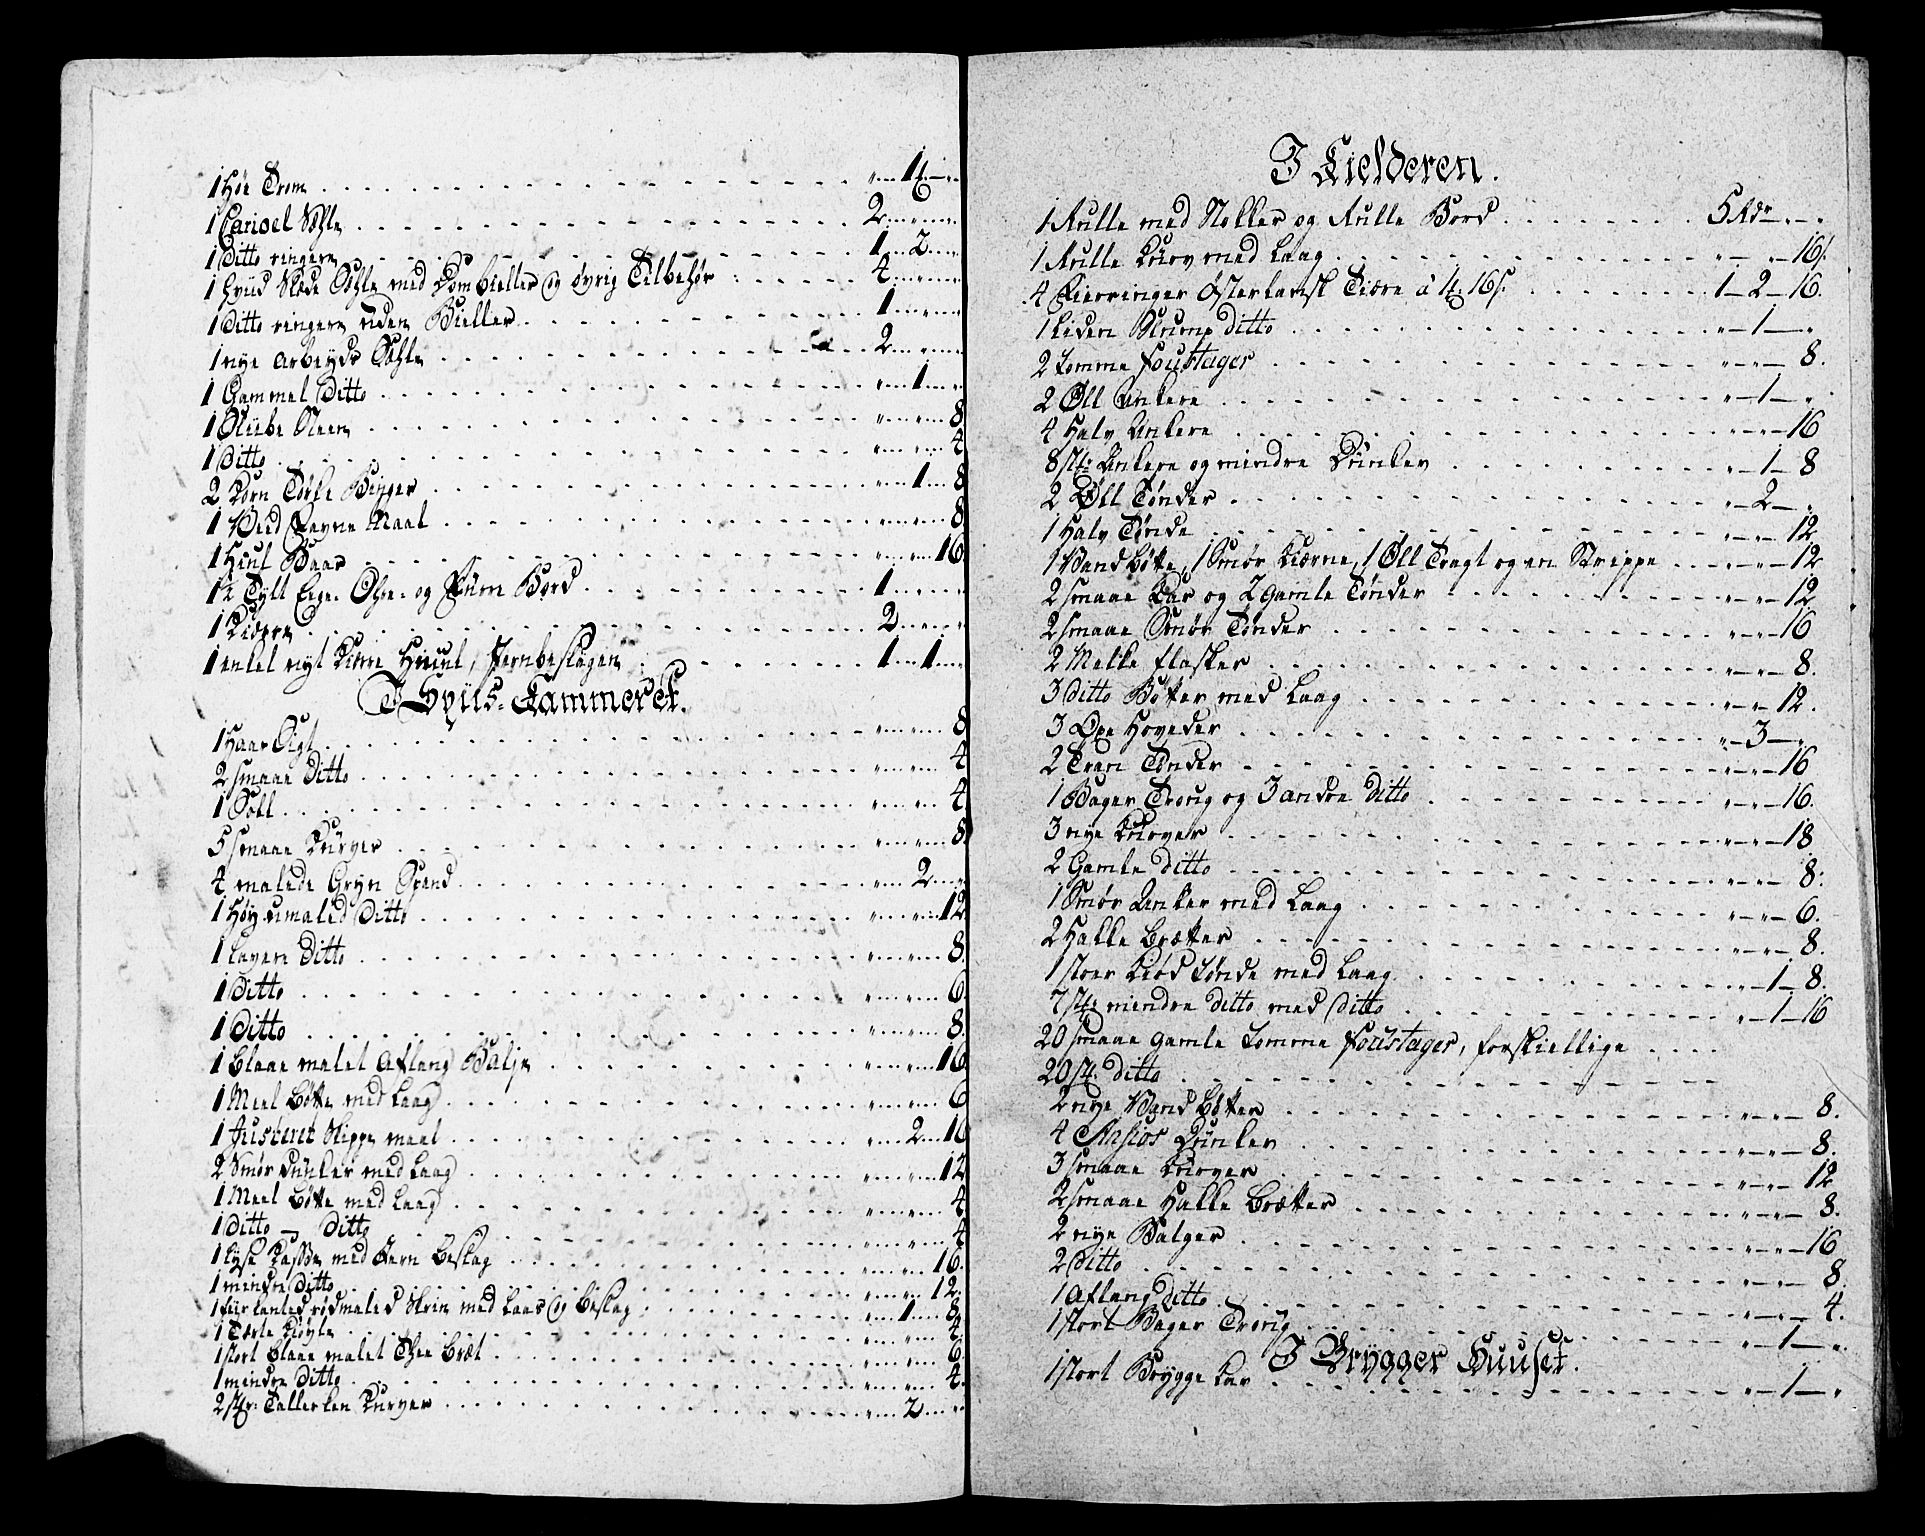 1 Høe Trom . . . „ — 1 — „
1 Carioel Sehle . . . 2 — „ — „
1 Ditto ringere . . . 1 — 2 — „
1 Hviid Slæde Sehle med Dombieller og øvrig Tilbehør . . . 4 — „ — „
1 Ditto ringere uden Bieller . . . 1 — „ — „
1 nye Arbeyds Sehle . . . 2 — „ — „
1 Gammel Ditto . . . „ — 1 — „
1 Sliibe Steen . . . „ — „ — 8
1 Ditto . . . „ — „ — 4
2 Korn Tørke Binger . . . „ — 1 — 8
1 Veed Favne Maal . . . „ — „ — 8
1 Hiul Baar . . . „ — „ — 16
1½ Tylt Ege- Ohre- og Bord . . . 1 — „ — „
1 Kiærre . . . 2 — „ — „
1 enkel nyt Kierre Hiuul, Jernbeslagen . . . 1 — 1 — „
I Spiis-Kammeret.
1 Haar Sigt . . . „ — „ — 8
2 smaae Ditto . . . „ — „ — 4
1 Sold . . . „ — „ — 4
5 smaae Kurver . . . „ — „ — 8
4 malede Gryn Spand . . . „ — 2 — „
1 Høy umaled Ditto . . . „ — „ — 12
1 Laven Ditto . . . „ — „ — 8
1 Ditto . . . „ — „ — 6
1 Ditto . . . „ — „ — 8
1 blaae malet Aflang Balje . . . „ — „ — 16
1 Meel Bøtte med Laag . . . „ — „ — 6
1 Justeret Skippe maal . . . „ — 2 — 16
2 Smør Dunker med Laag . . . „ — „ — 12
1 Meel Bøtte med Laag . . . „ — „ — 4
1 Ditto — Ditto . . . „ — „ — 4
1 Lyse Kasse med Jern Beslag . . . „ — „ — 16.
1 mindre Ditto . . . „ — „ — 12.
1 fiirkanted rødmaled Skrin med Laas og Beslag . . . „ — 1 — 8
1 Tærte Kiøvle . . . „ — „ — 4
1 stort blaae malet Thee Bræt . . . „ — „ — 6
1 mindre Ditto . . . „ — „ — 4.
2 Stk: Tallerken Kurver . . . „ — 2 — „
I Kielderen.
1 Rulle med Stokker og Rulle Bord . . . 5 Rdr „ — „
1 Rulle Kurv med Laag . . . „ — „ — 16s.
4 Fierringer Østerlansk Tiære á 1 16s. . . . 1 — 2 — 16.
1 Liden Slump ditto . . . „ — 1 — „
2 tomme foustager . . . „ — „ — 8.
2 Øll Ankere . . . „ — 1 — „
4 Halv Ankere . . . „ — „ — 16
8 Stk: Ankere og mindre Dunker . . . „ — 1 — 8
2 Øll Tønder . . . „ — 2 — „
1 Halv Tønde . . . „ — „ — 12
1 Vand bøtte, 1 Smør Kiærne, 1 Øll Tragt og en Strippe . . . „ — „ — 12
2 smaae Kar og 2 Gamle Tønder . . . „ — „ — 12
2 smaae Smør Tønder . . . „ — „ — 16
2 Melke flasker . . . „ — „ — 8.
3 Ditto Bøtter med Laag . . . „ — „ — 12.
3 Oxe Hoveder . . . „ — 3 — „
2 Tran Tønder . . . „ — „ — 16
1 Bager Troug og 3 andre ditto . . . „ — „ — 16.
3 nye Kurver . . . „ — „ — 18
2 Gamle Ditto . . . „ — „ — 8.
1 Smør Anker med Laag . . . „ — „ — 6.
2 Hakke Brætter . . . „ — „ — 8.
1 stoer Kiød tønde med Laag . . . „ — 1 — 8.
7 Stk: mindre ditto med Ditto . . . „ — 1 — 16
20 smaae gamle tomme foustager, forskiellige . . .
20 Stk: ditto . . .
2 nye Vand bøtter . . . „ — „ — 8.
4 Ansios Dunker . . . „ — „ — 8.
3 smaae Kurver . . . „ — „ — 12
2 smaae Hakke Brætter . . . „ — „ — 8.
2 nye Balger . . . „ — „ — 16
2 Ditto . . . „ — „ — 8.
1 Aflang ditto . . . „ — „ — 4.
1 stort Bager Troug . . . „ — 1 — „
I Brygger Huuset.
1 stort Brygge Kar . . . „ — 1 — „